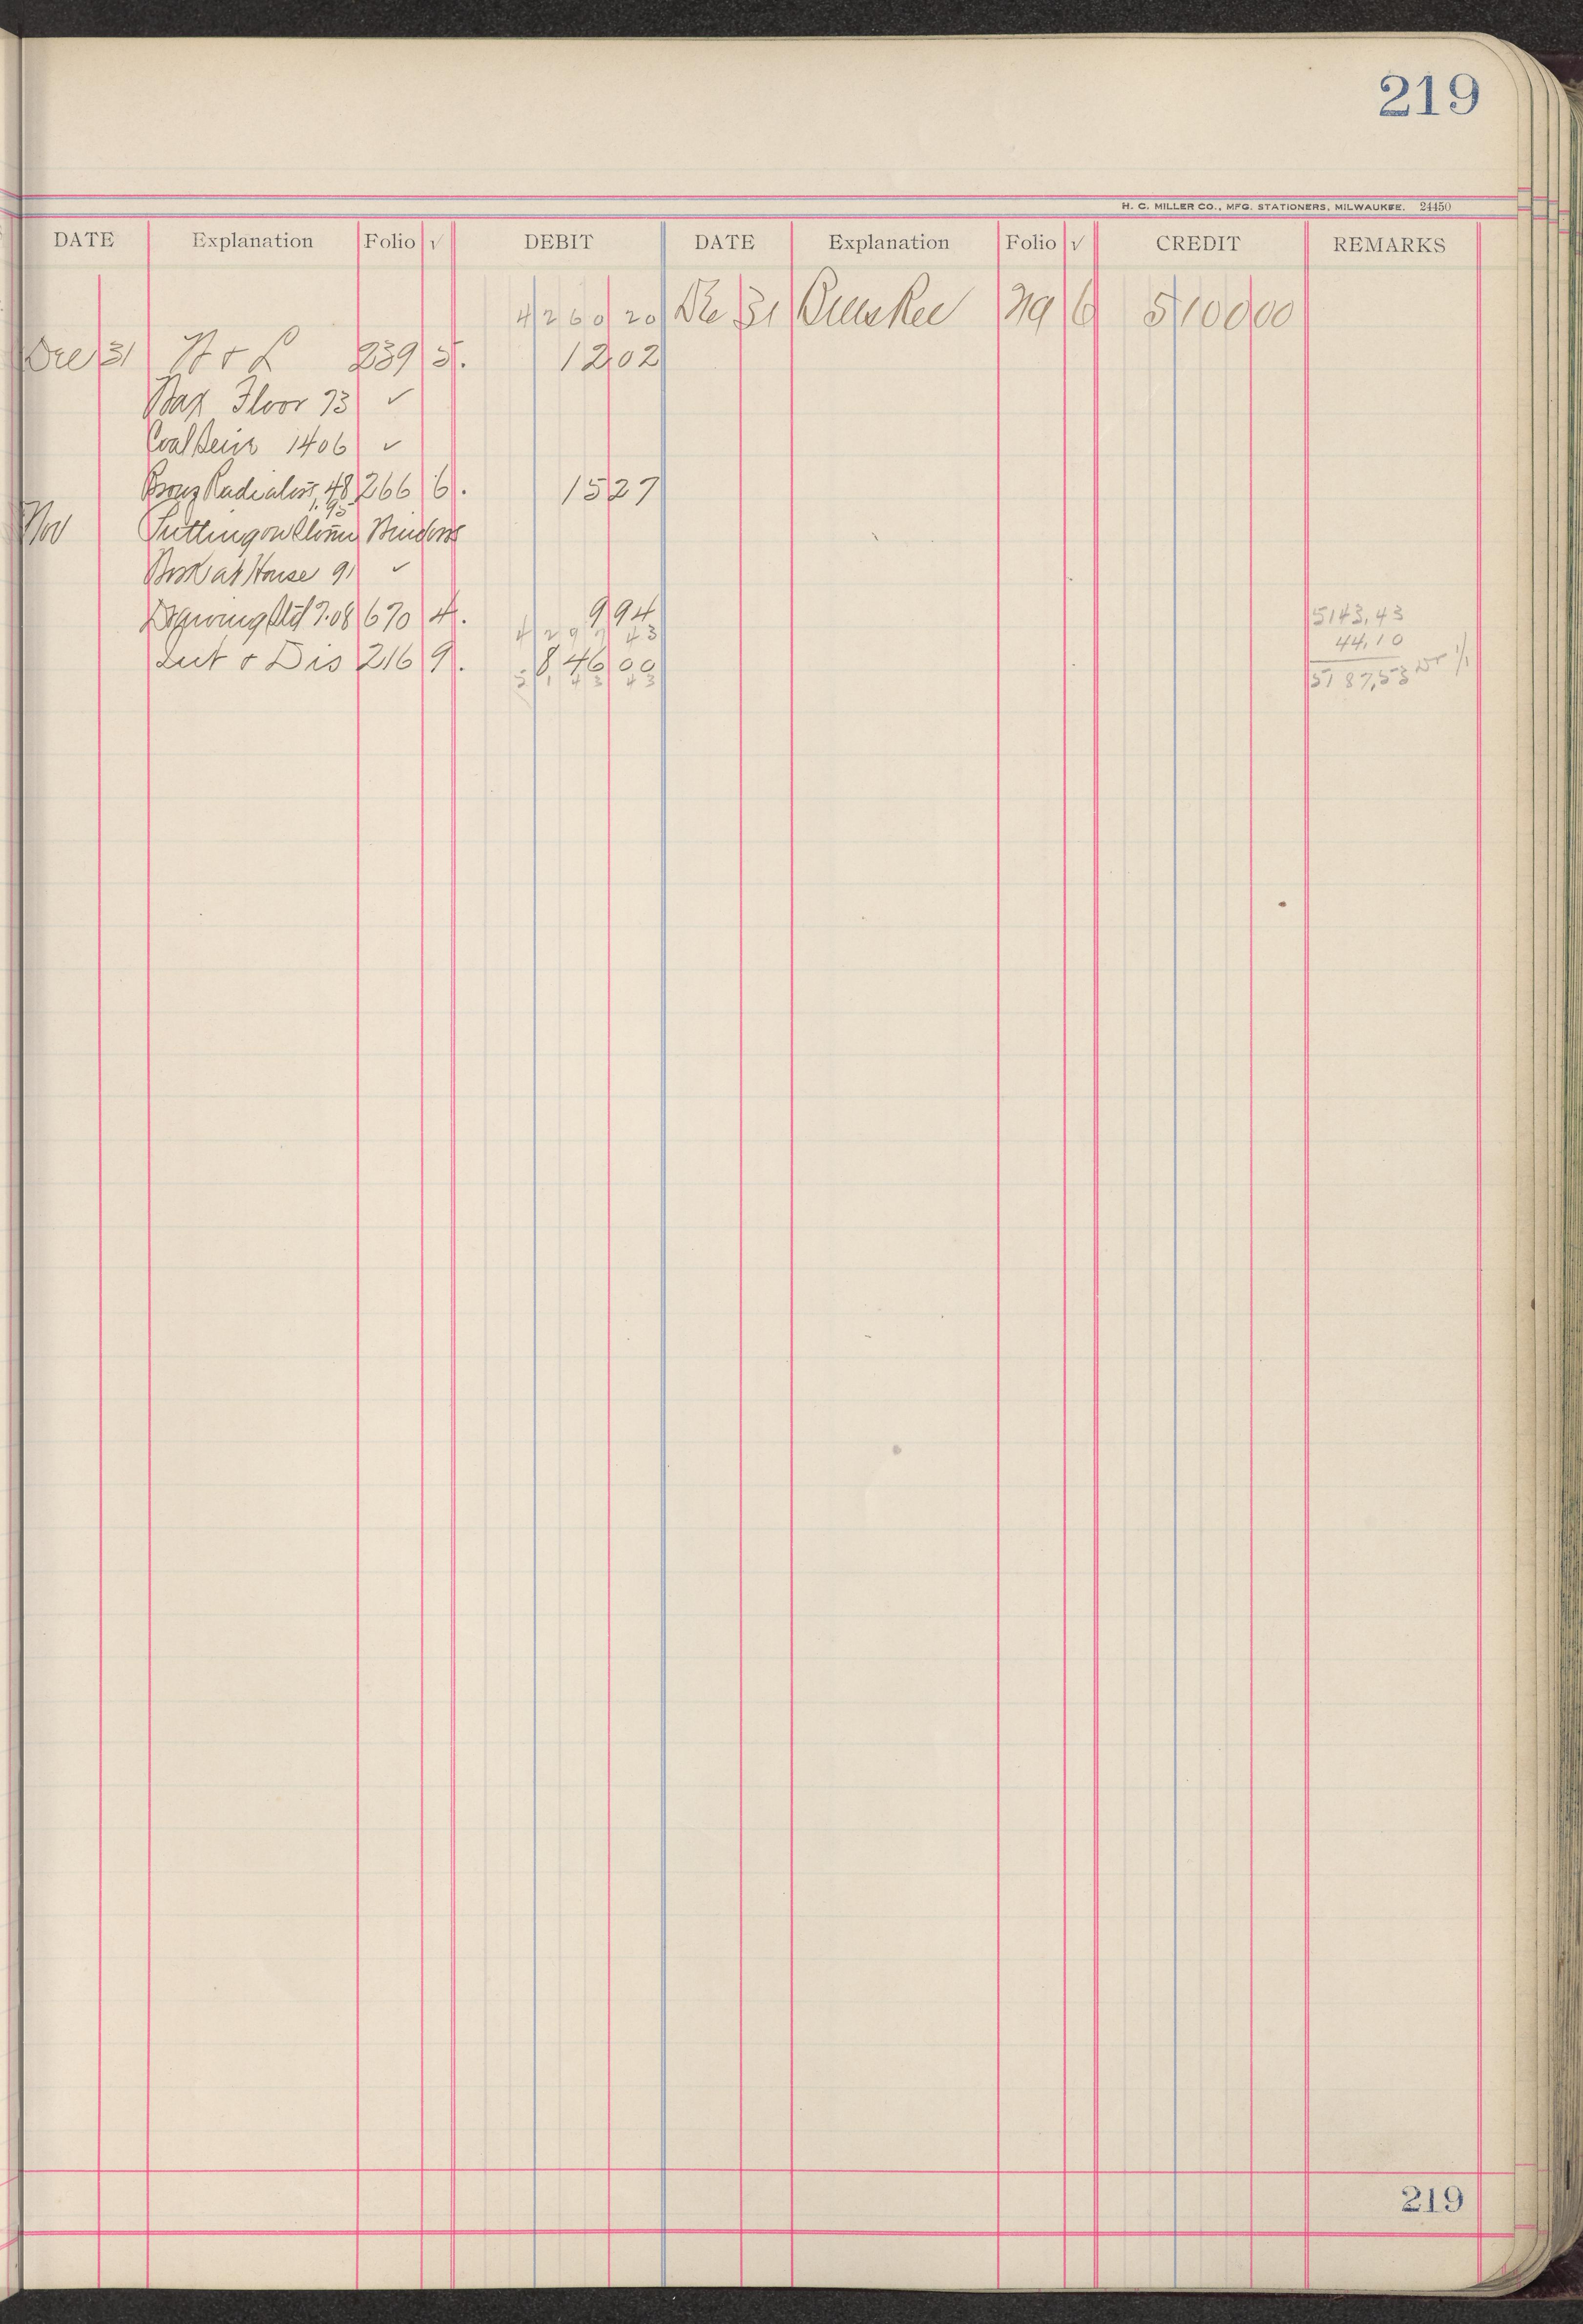 219
H. C. MILLER CO., MFG. STATIONERS, MILWAUKEE. 24450
DATE Explanation Folio √ DEBIT DATE Explanation Folio √ CREDIT REMARKS
4260 20 Dec 31 Bills Rec 219 6 5100 00
Dec 31 H + L 239 5. 12 02
Wax Floor 73 ✓
Coal 1406 ✓
Bronz Radiators, 48 266 6. 15 27
1.95
Nov Putting on Storm Windows
Work at House 91 ✓
7.08 670 4. 9 94 5143,43
4297 43 44,10
Int + Dis 216 9. 846 00 5187,53 Dr 1/1
5143 43
219